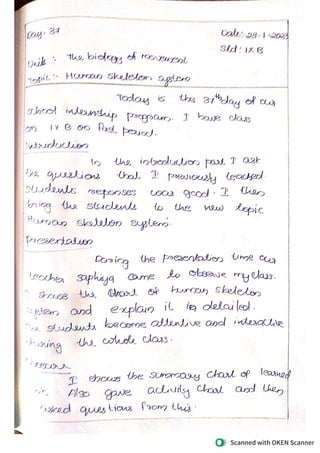 Day - 37
Date:- 28-1-2023
Std : IX B
Unit :- The biology of movement
Topic :- Human skeleton system
Today is the 37th day of our
school internship program. I have class
on IX B on first period.
Introduction
In the introduction part I ask
the questions that I previously teached.
students responses was good. I then
bring the students to the new topic
Human skeleton system.
Presentation
During the presentation time our
teacher came to observe my class.
I shows the chart of human skeleton
system and explain it in detailed.
The students become attentive and interactive
during the whole class.
I shows the summary chart of learned
Also gave activity chart and then
asked questions from this.
Scanned with OKEN Scanner